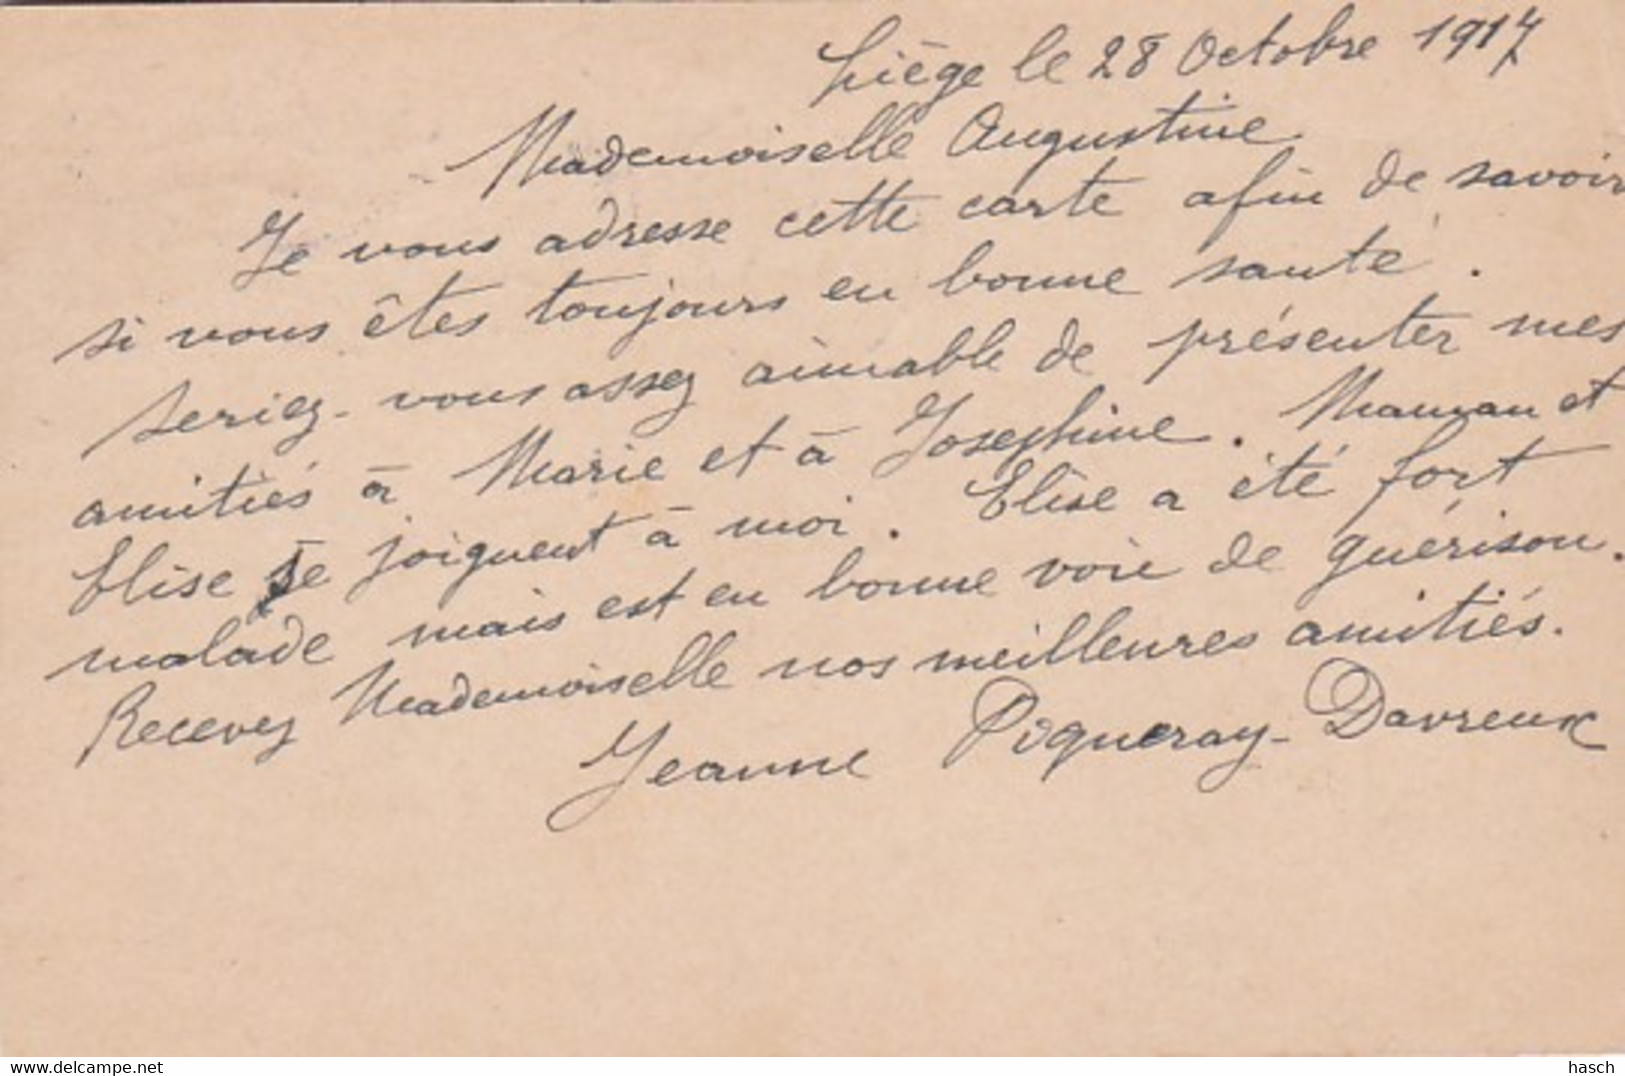 Liège le 28 Octobre 1917
Mademoiselle Augustine
Je vous adresse cette carte afin de savoir
si vous êtes toujours en bonne santé.
Seriez-vous assez aimable de présenter mes
amitiés à Marie et à Josephine. Maman et
Elise se joignent à moi. Elise a été fort
malade mais est en bonne voie de guérison.
Recevez Mademoiselle nos meilleures amitiés.
Jeanne Piqueray-Davreux
© www.delcampe.net
hasch